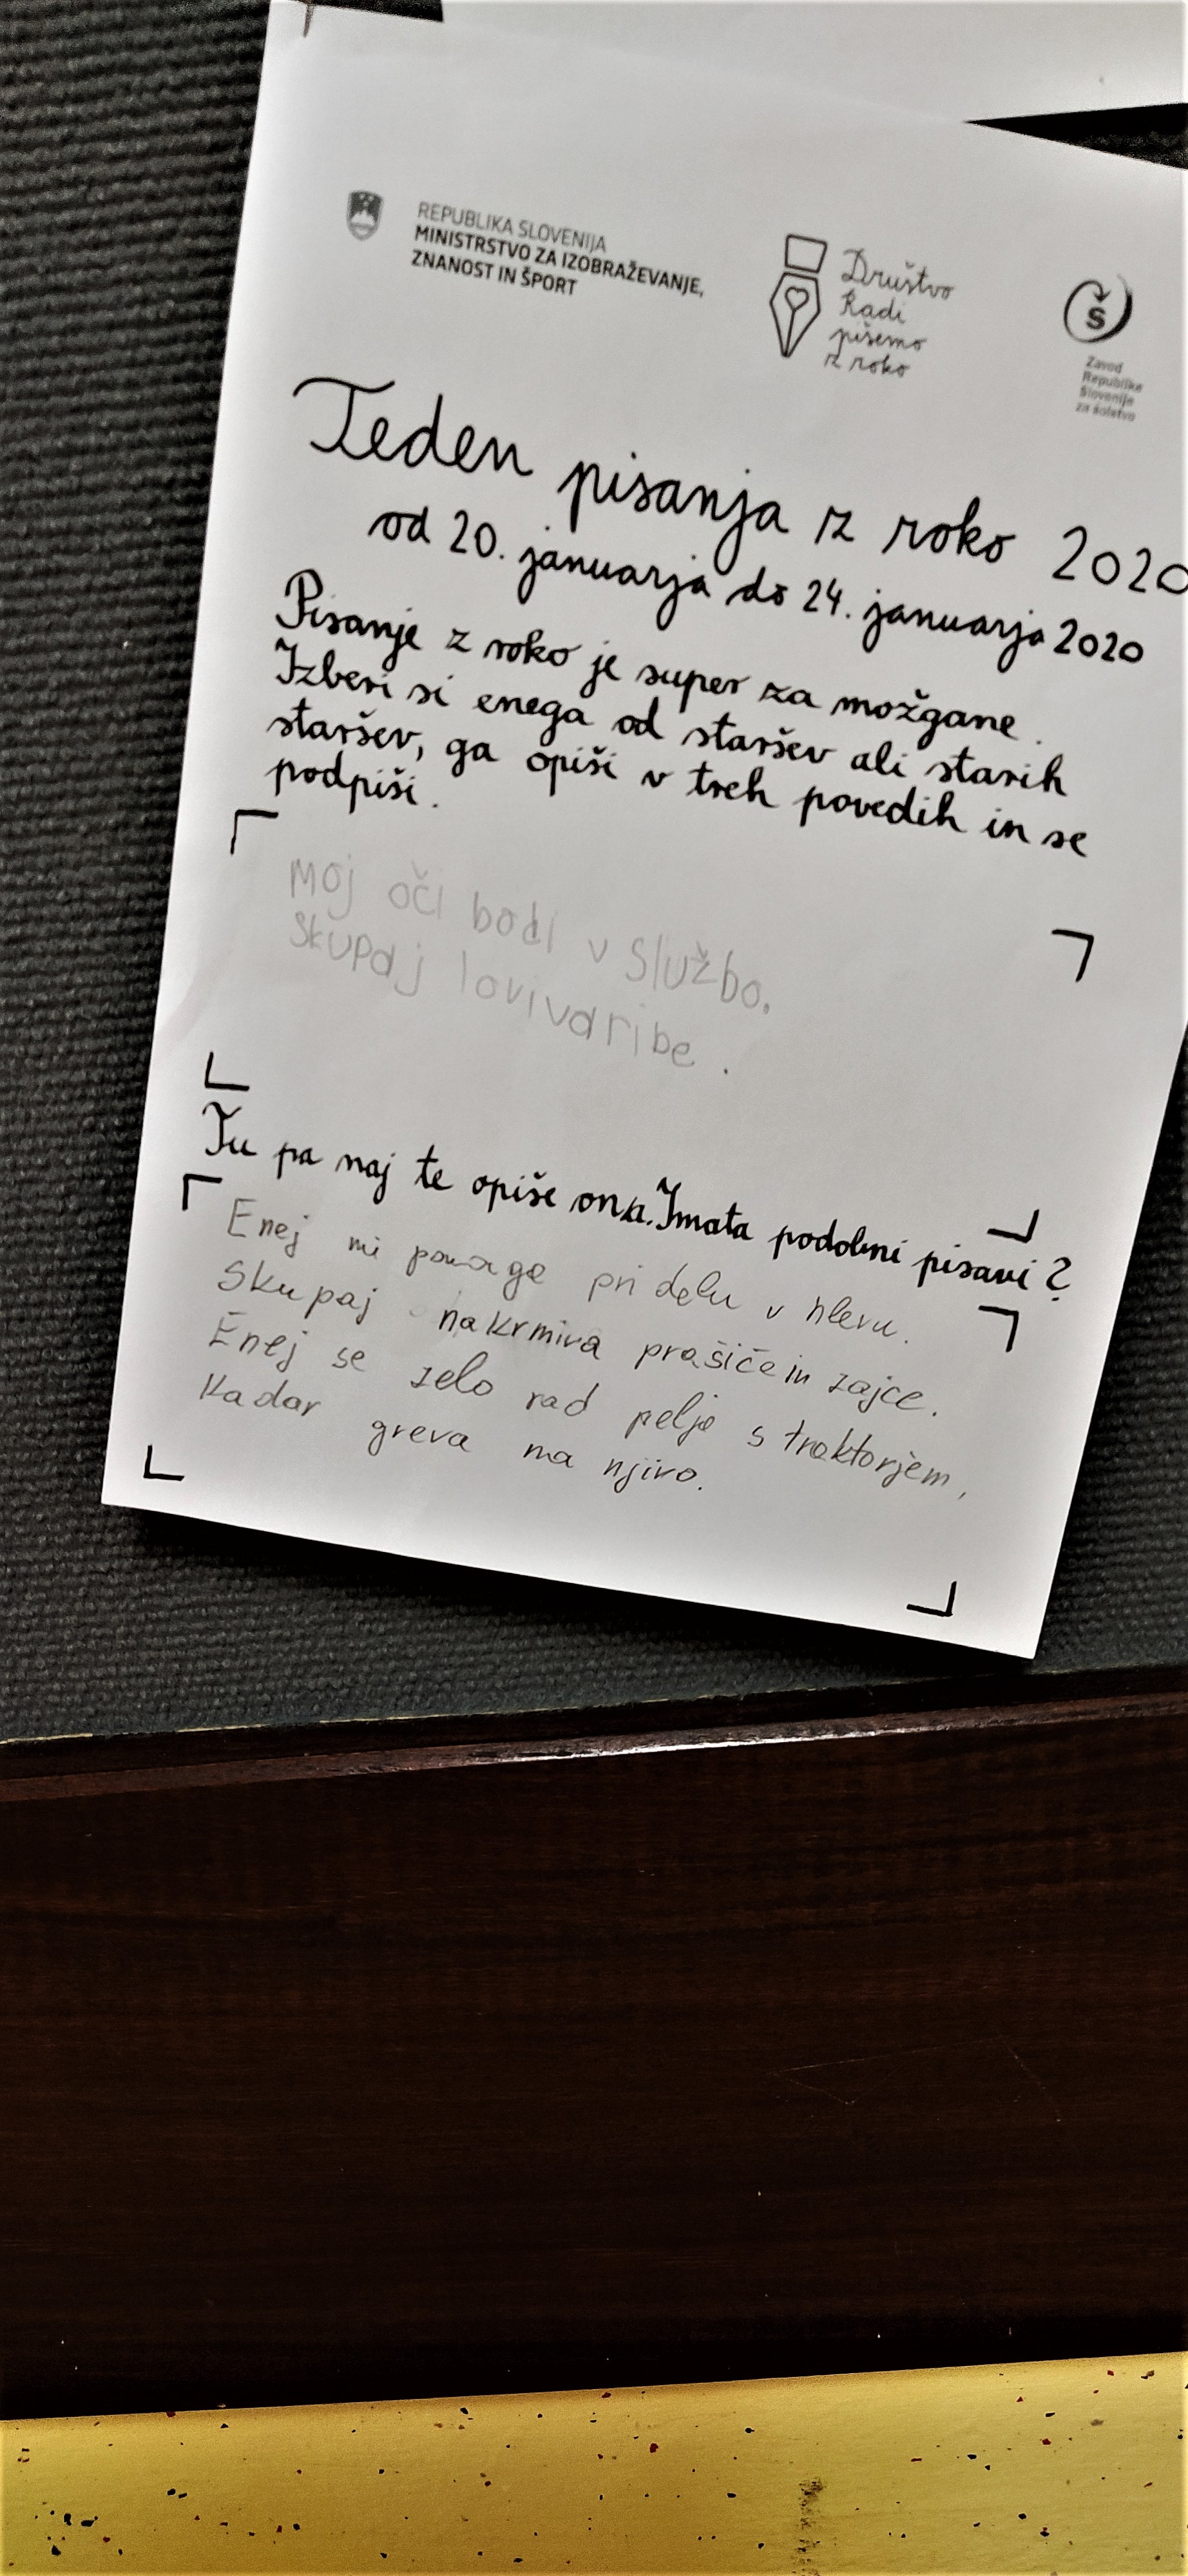 REPUBLIKA SLOVENIJA
MINISTRSTVO ZA IZOBRAŽEVANJE,
ZNANOST IN ŠPORT
Društvo
Radi
pišemo
z roko
Š
Zavod
Republike
Slovenije
za šolstvo
Teden pisanja z roko 2020
od 20. januarja do 24. januarja 2020
Pisanje z roko je super za možgane.
Izberi si enega od staršev ali starih
staršev, ga opiši v treh povedih in se
podpiši.
Moj oči hodi v Službo.
Skupaj loviva ribe.
Tu pa naj te opiše on/a. Imata podobni pisavi?
Enej mi pomaga pri delu v hlevu.
Skupaj nakrmiva prašiče in zajce.
Enej se zelo rad pelje s traktorjem,
kadar greva na njivo.